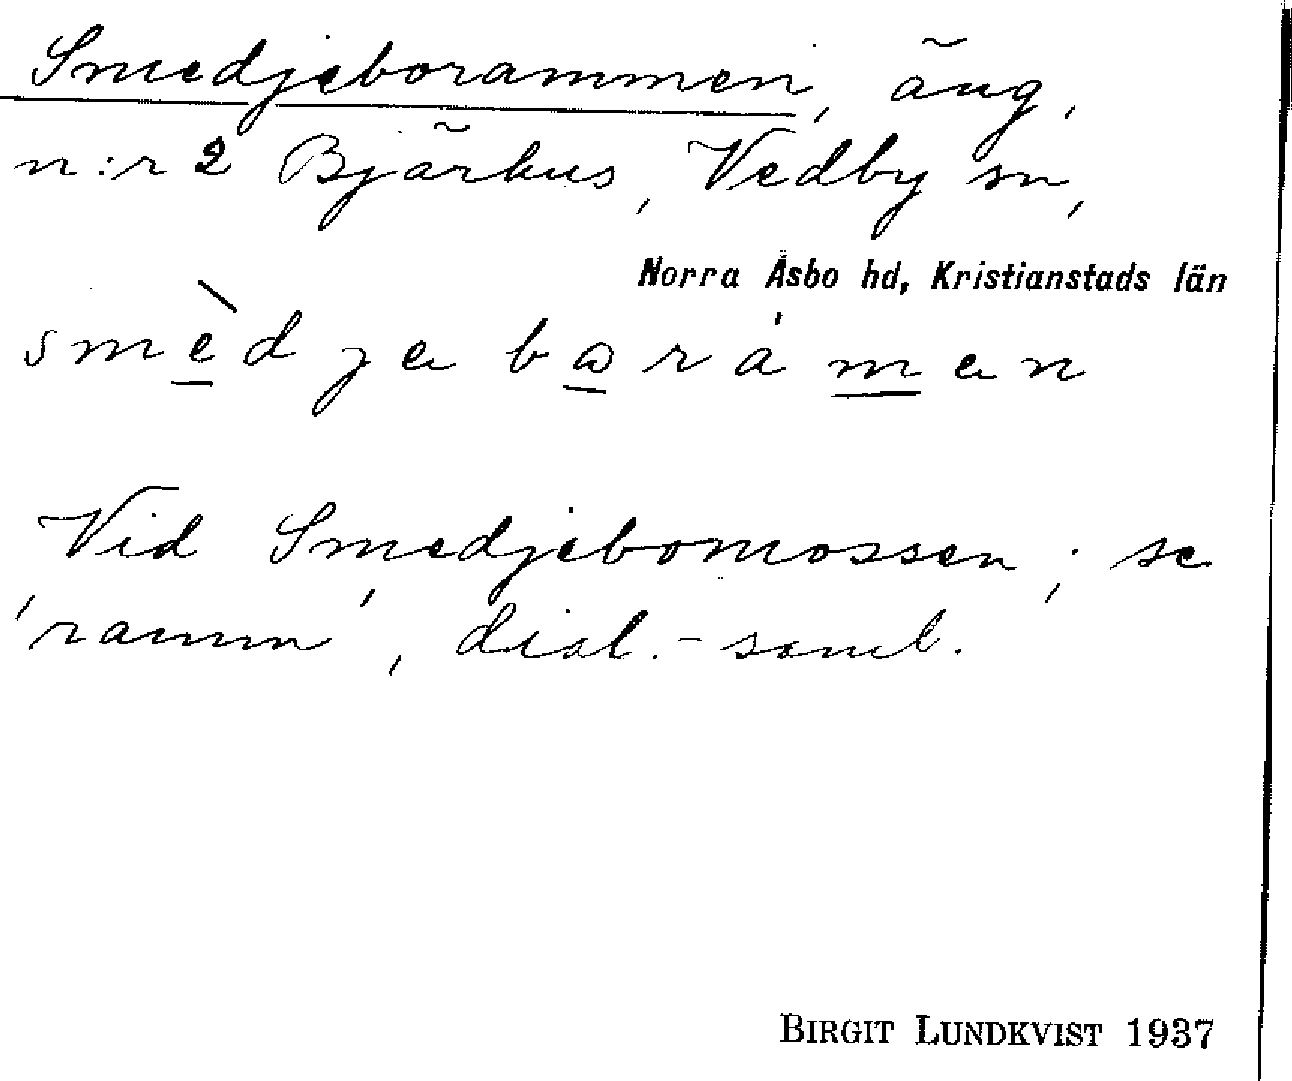 Smedjeborammen, äng,
n:r 2 Bjärhus, Vedby sn,
Norra Åsbo hd, Kristianstads län
smèdjebɷrámen
Vid Smedjebomossen; se
'ramm', dial.-saml.
BIRGIT LUNDKVIST 1937